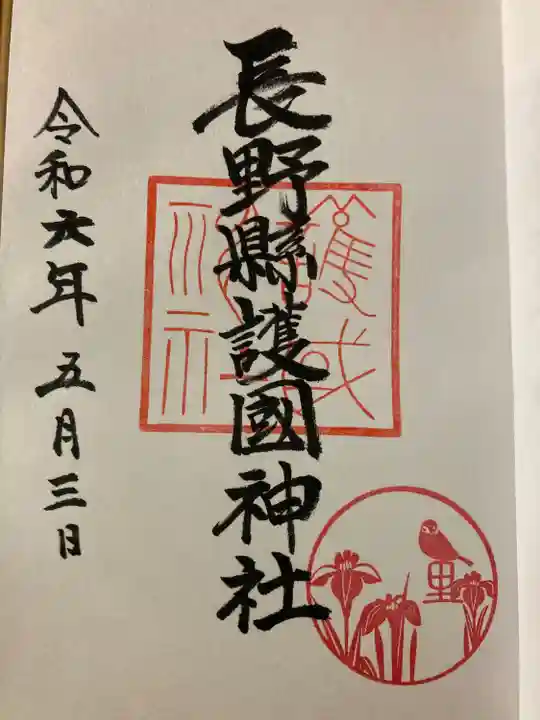 長野縣護國神社
令和六年五月三日
里